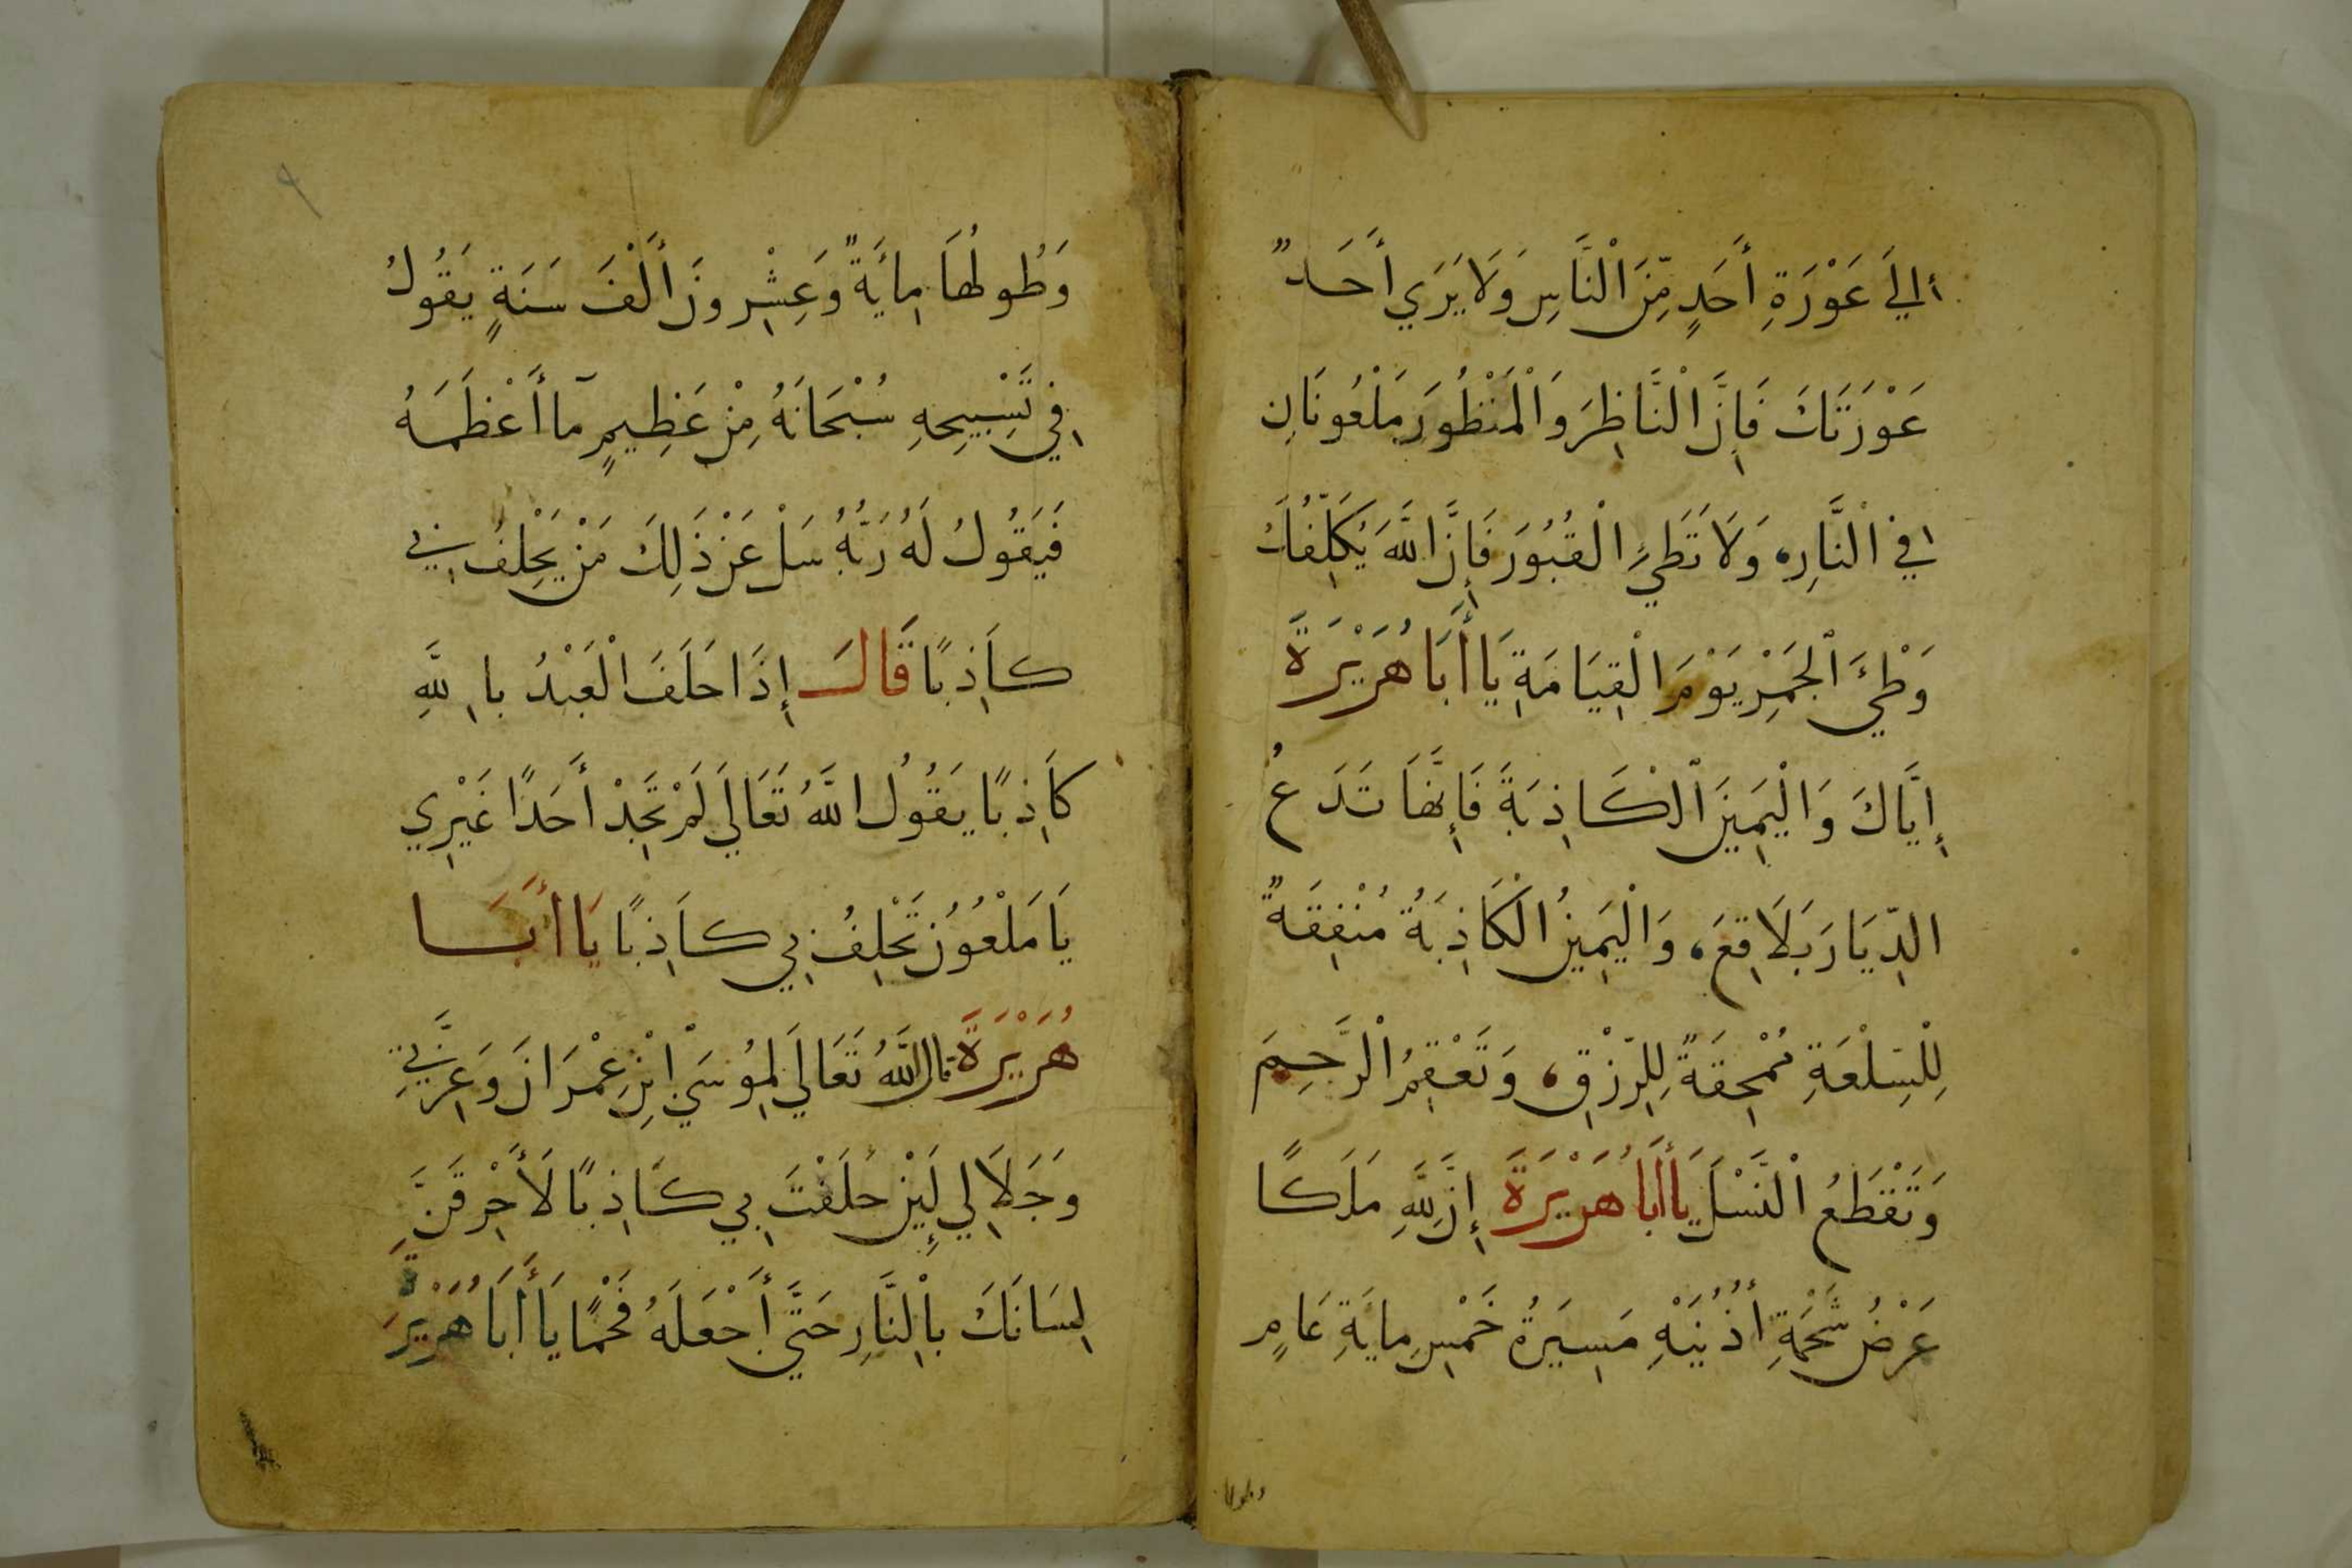 إلي عَوْرَةِ أَحَدٍ مِّنَ الْنَّاسِ وَلَا يَرَي أَحَدٌ
عَوْرَتَكَ فَإِنَّ الْنَّاظِرَ وَالْمَنْظُورَ مَلْعُونَانِ
فِي الْنَّارِ، وَلَا تَطَيِءِ الْقُبُورَ فَإِنَّ اللَّهَ يُكَلِّفُكَ
وَطْيءَ الْجَمْرِ يَوْمَ الْقِيَامَةِ يَا أَبَا هُرَيْرَةَ
إِيَّاكَ وَالْيَمِينَ الْكَاذِبَةَ فَإِنَّهَا تَدَعُ
الدِّيَارَ بَلَاقِعَ، وَالْيَمِينُ الْكَاذِبَةُ مُنْفِقَةٌ
لِلْسِلْعَةِ مُمْحِقَةٌ لِلِرّزْقِ، وَتَعْقِمُ الْرَّحِيمَ
وَتَقْطَعُ الْنَّسْلَ يَا أَبَا هُرَيْرَةَ إِنَّ لِلَّهِ مَلَكًا
عَرْضُ شَحْمَةِ أُذُنَيْهِ مَسِيَرةُ خَمْسِ مِايَةِ عَامٍ
وطولها
وَطُولُهَا مِايَةٌ وَعِشْرِونَ أَلْفَ سَنَةٍ يَقُولُ
فِي تَسْبِيحِهِ سُبْحَانَهُ مِنْ عَظِيمٍ مَآ أَعْظَمَهُ
فَيَقُولُ لَهُ رَبُّهُ سَلْ عَنْ ذَلِكَ مَنْ يَحْلِفُ بِي
كَاذِبًا قَالَ إِذَا حَلَفَ الْعَبْدُ بِاللَّهِ
كَاذِبًا يَقُولُ اللَّهُ تَعَالَي لَمْ تَجِدْ أَحَدًا غَيْرِي
يَا مَلْعُوُن تَحْلِفُ بِي كَاذِبًا يَا أَبَا
هُرَيْرَةَ قال اللَّهُ تَعَالَي لِمُوسَيْ ابْنِ عِمْرَانَ وَعِزَّتِي
وَجَلَالِي لَيِنْ حَلَفْتَ بِي كَاذِبًا لَأَحْرِقَنَّ
لِسَانَكَ بِالْنَّارِ حَتَّي أَجْعَلَهُ فَحْمًا يَا أَبَا هُرَيْرَةَ